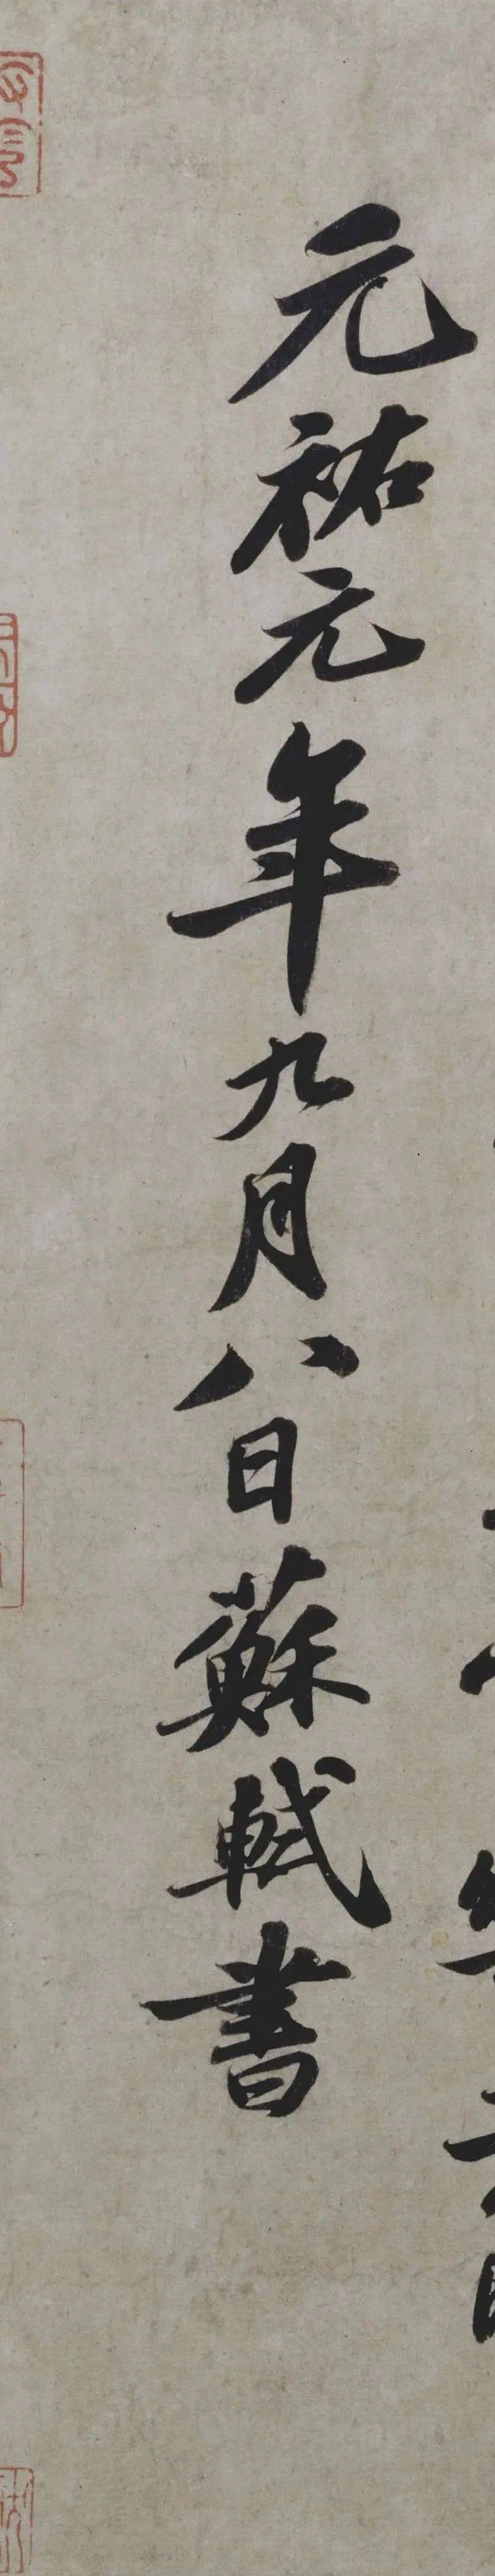 元祐元年九月八日蘇軾書